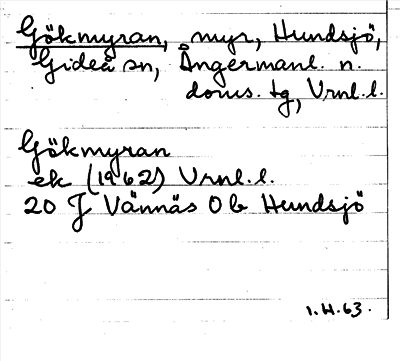 Gökmyran, myr, Hundsjö,
Gideå sn, Ångermanl. n.
doms. tg, Vrnl.l.
Gökmyran
ek (1962) Vrnl.l.
20 J Vännäs 0 b Hundsjö
1.H.63.